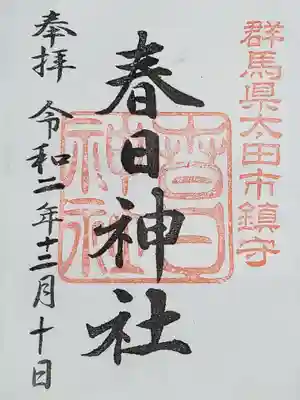 群馬県太田市鎮守
春日神社
春日神社
奉拝
令和二年十二月十日